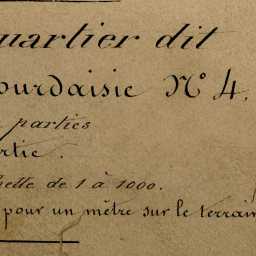 quartier dit
ourdaisie N° 4.
parties
rtie.
helle de 1 à 1000.
pour un mètre sur le terrain